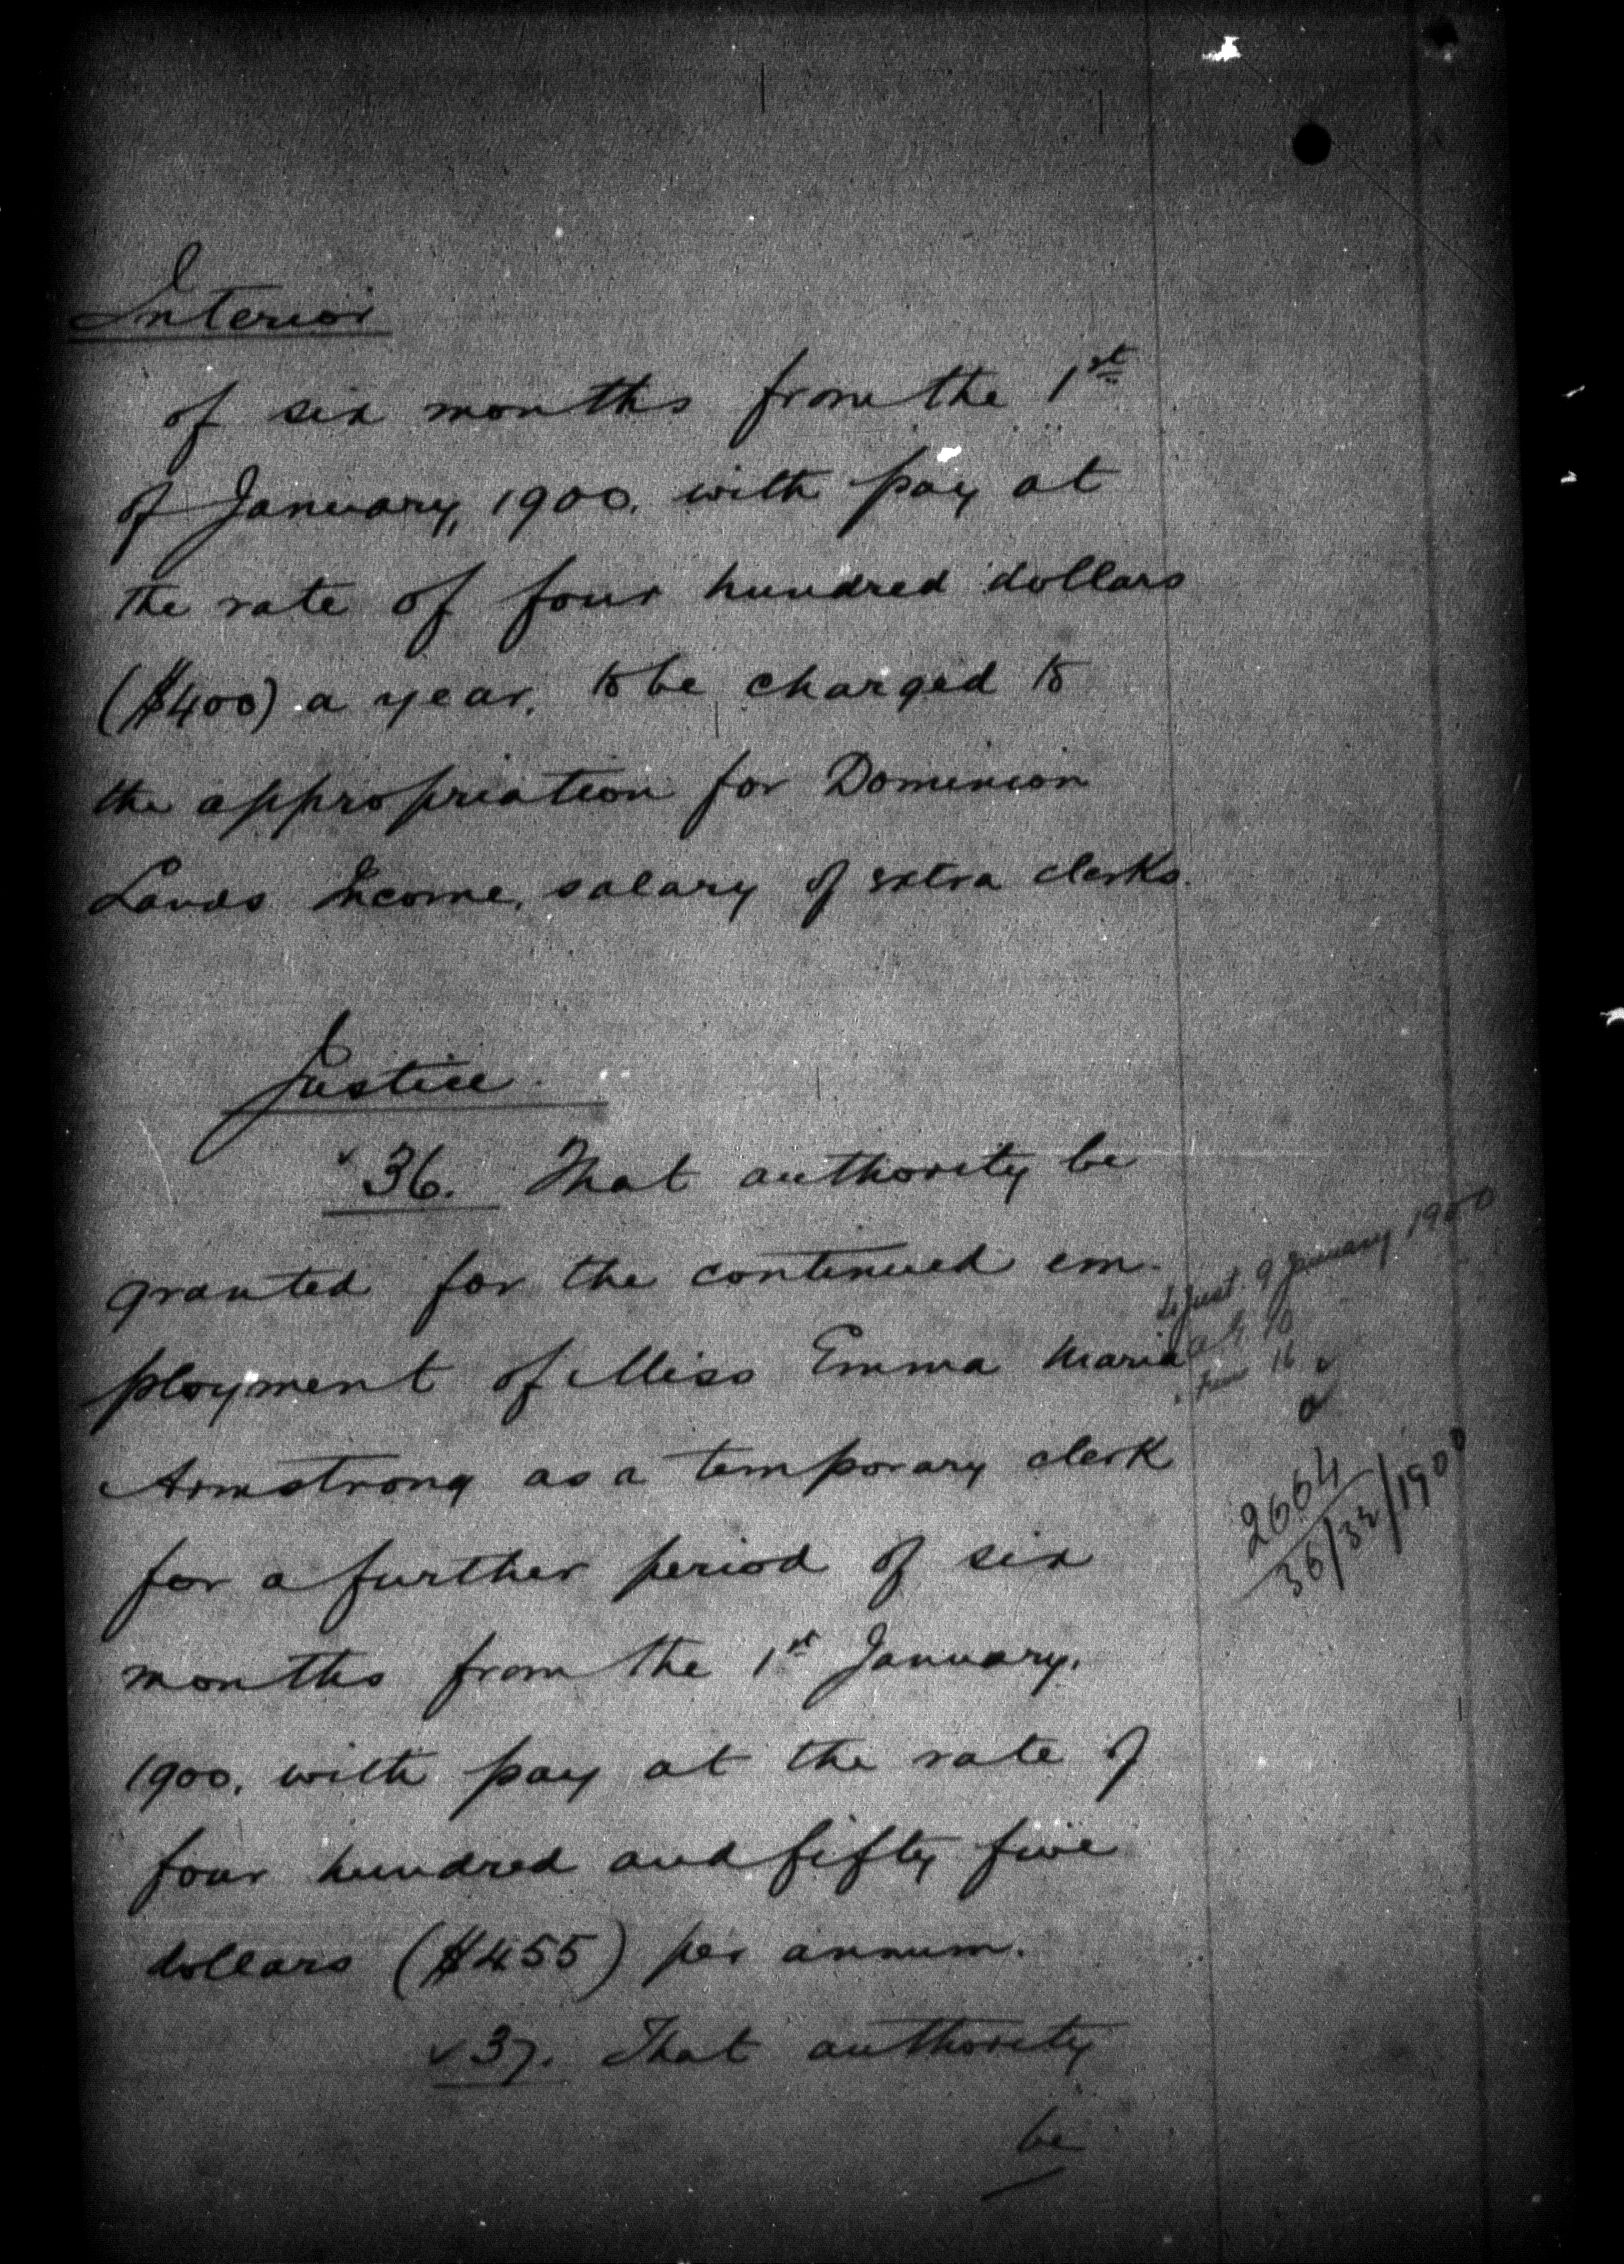 Interior
of six months from the 1st
of January, 1900, with pay at
the rate of four hundred dollars
($400) a year, to be charged to
the appropriation for Dominion
Lands Income, salary of extra clerks.
Justice.
36. That authority be
granted for the continued em-
ployment of Miss Emma Maria
Armstrong as a temporary clerk
for a further period of six
months from the 1st January,
1900, with pay at the rate of
four hundred and fifty five
dollars ($455) per annum.
37. That authority
be
Just. 9 January 1900
10
16
2664
36/32/1900